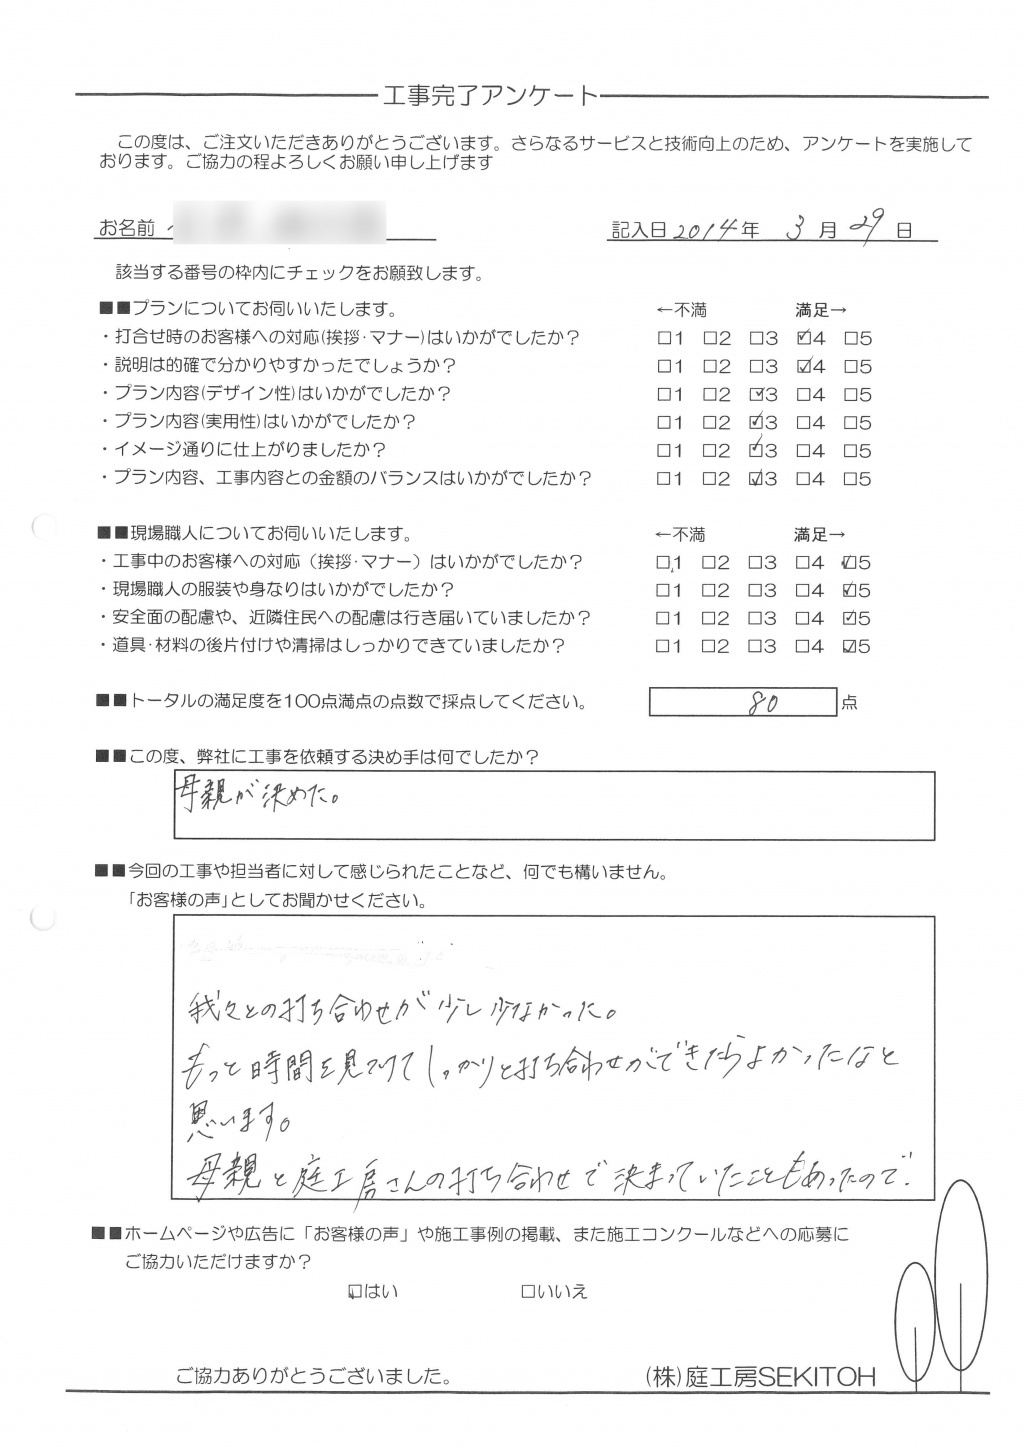 工事完了アンケート
この度は、ご注文いただきありがとうございます。さらなるサービスと技術向上のため、アンケートを実施して
おります。ご協力の程よろしくお願い申し上げます
お名前 記入日 2014 年 3 月 29 日
該当する番号の枠内にチェックをお願致します。
■■プランについてお伺いいたします。 ←不満 満足→
・打合せ時のお客様への対応(挨拶・マナー)はいかがでしたか? □1 □2 □3 ☑4 □5
・説明は的確で分かりやすかったでしょうか? □1 □2 □3 ☑4 □5
・プラン内容(デザイン性)はいかがでしたか? □1 □2 ☑3 □4 □5
・プラン内容(実用性)はいかがでしたか? □1 □2 ☑3 □4 □5
・イメージ通りに仕上がりましたか? □1 □2 ☑3 □4 □5
・プラン内容、工事内容との金額のバランスはいかがでしたか? □1 □2 ☑3 □4 □5
■■現場職人についてお伺いいたします。 ←不満 満足→
・工事中のお客様への対応（挨拶・マナー）はいかがでしたか? □1 □2 □3 □4 ☑5
・現場職人の服装や身なりはいかがでしたか? □1 □2 □3 □4 ☑5
・安全面の配慮や、近隣住民への配慮は行き届いていましたか? □1 □2 □3 □4 ☑5
・道具・材料の後片付けや清掃はしっかりできていましたか? □1 □2 □3 □4 ☑5
■■トータルの満足度を100点満点の点数で採点してください。 80 点
■■この度、弊社に工事を依頼する決め手は何でしたか?
母親が決めた。
■■今回の工事や担当者に対して感じられたことなど、何でも構いません。
「お客様の声」としてお聞かせください。
我々との打ち合わせが少し少なかった。
もっと時間を見つけてしっかりと打ち合わせができたらよかったなと
思います。
母親と庭工房さんの打ち合わせで決まっていたこともあったので.
■■ホームページや広告に「お客様の声」や施工事例の掲載、また施工コンクールなどへの応募に
ご協力いただけますか?
☑はい □いいえ
ご協力ありがとうございました。 (株)庭工房SEKITOH